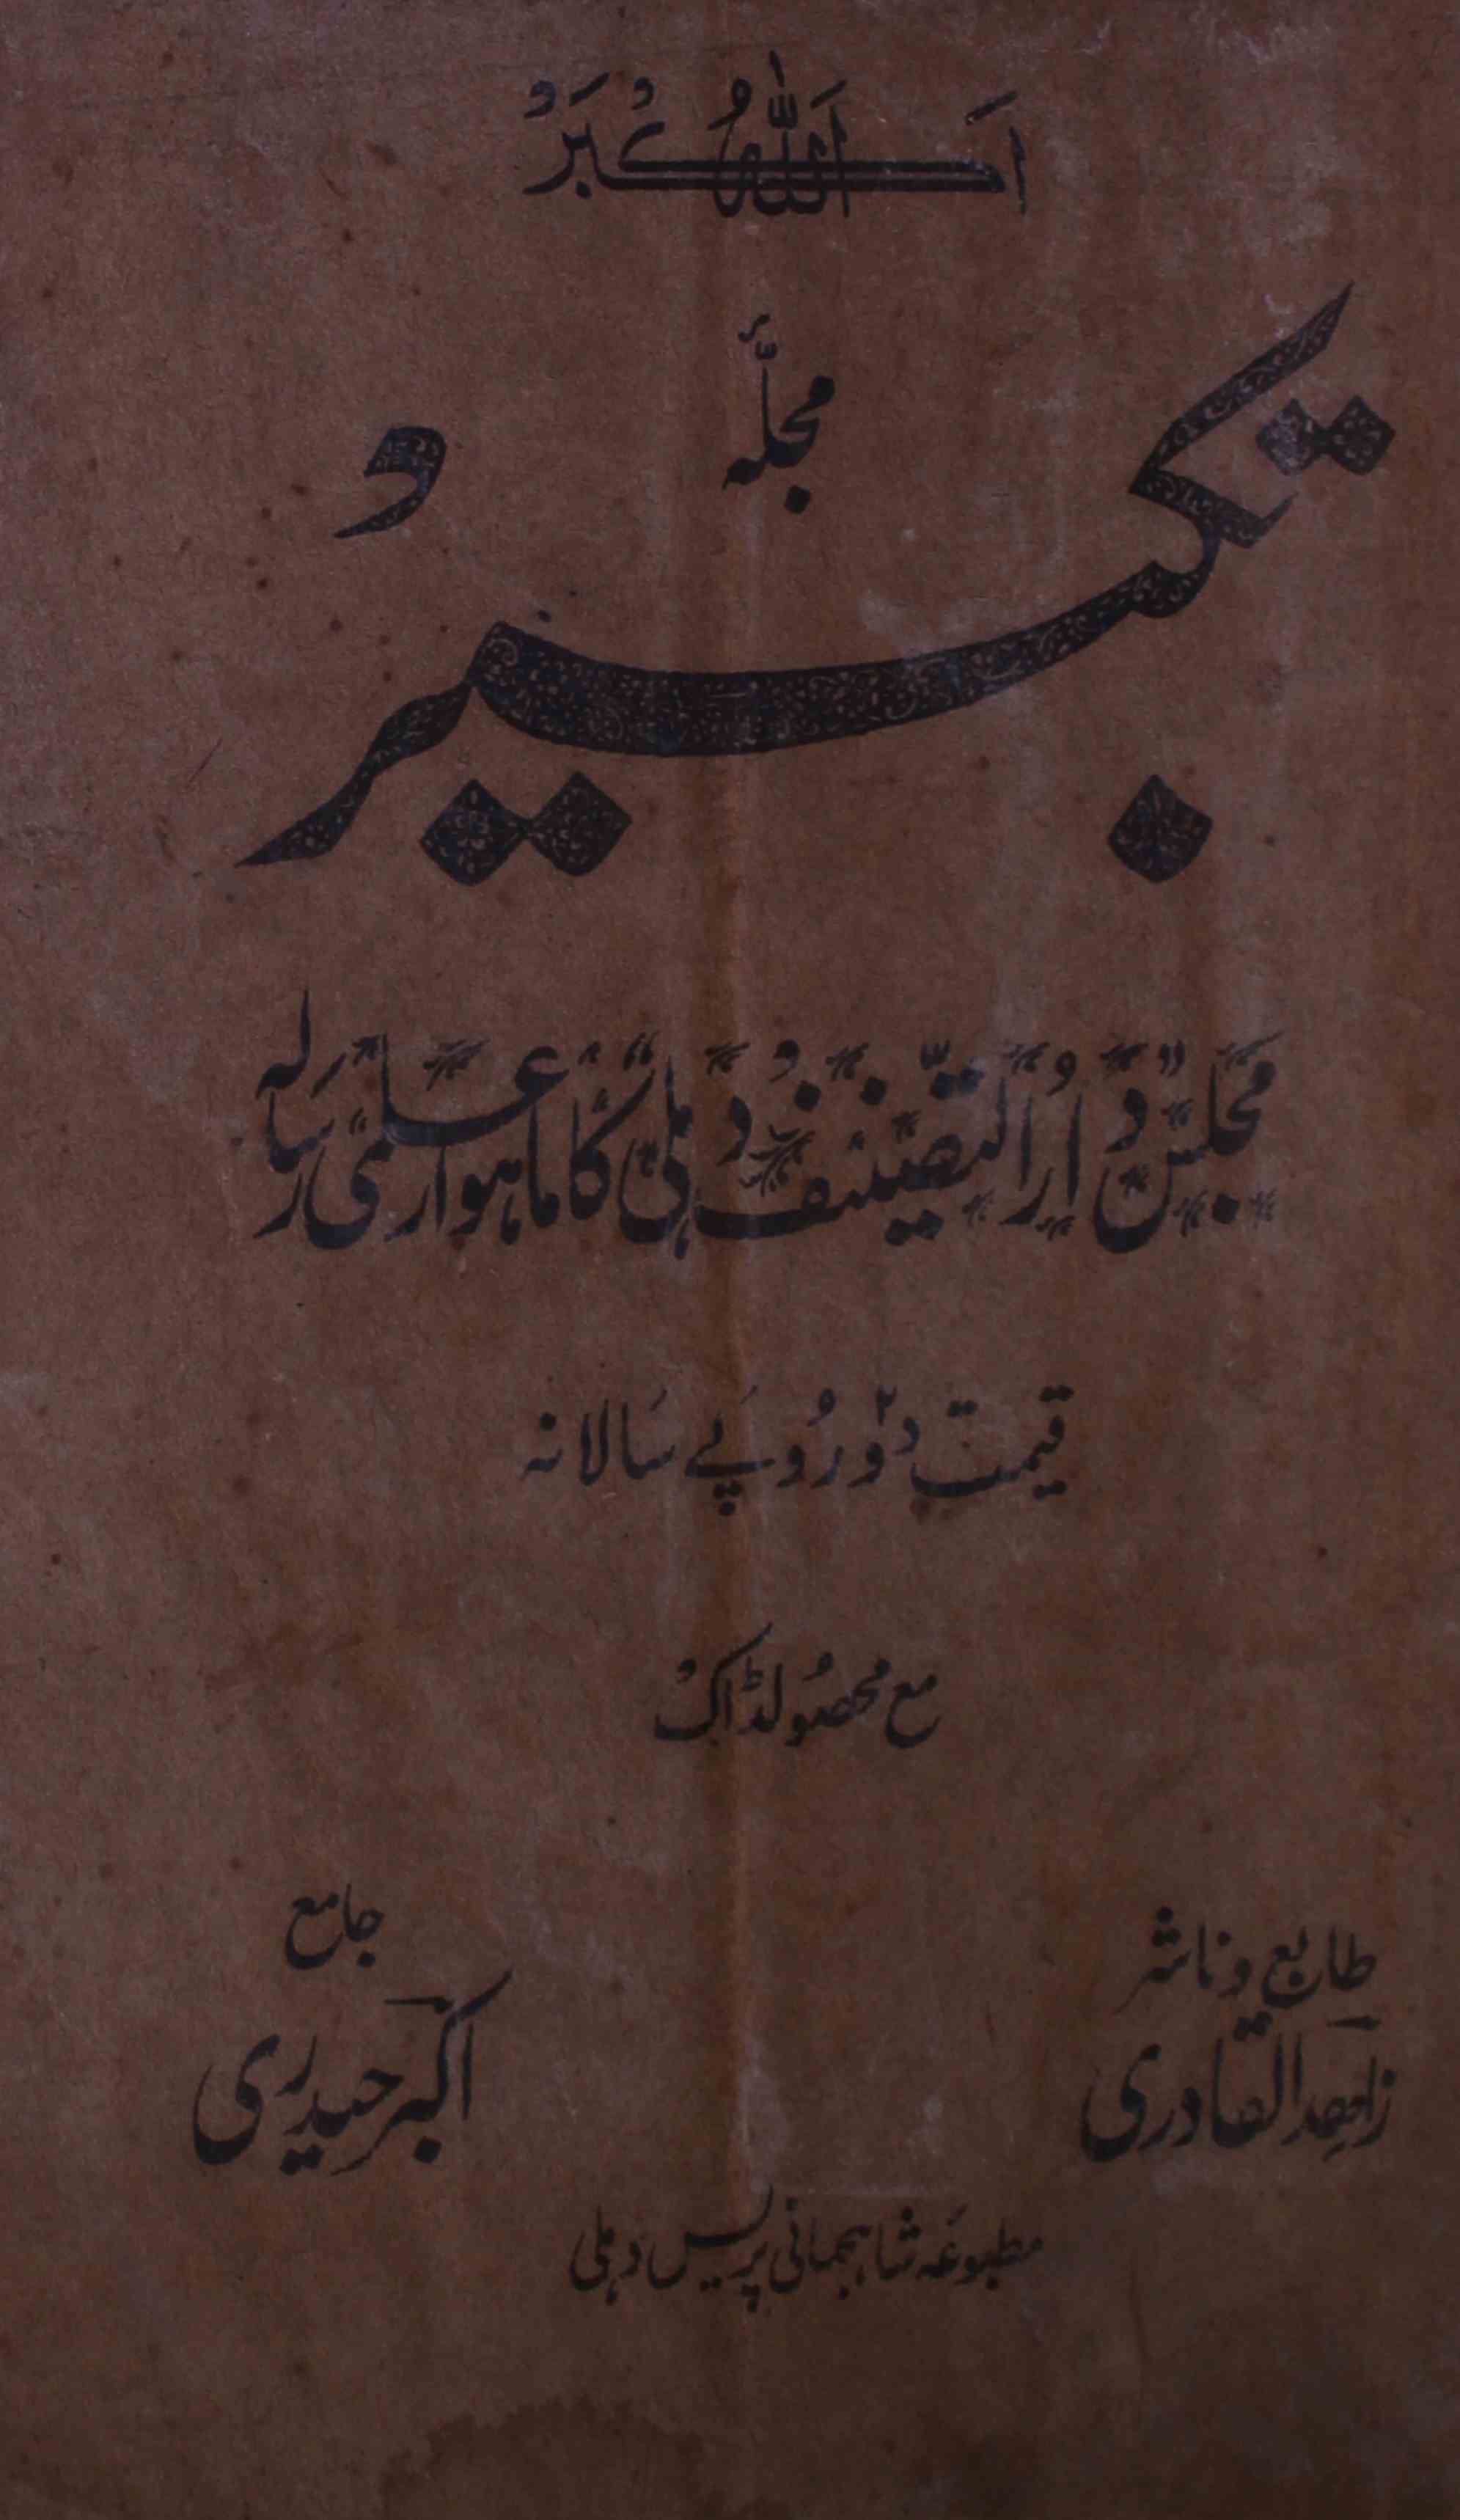 اَللّٰهُ اَکْبَرْ
مجلّہ
تکبیر
مجلس دارالتصنیف دہلی کا ماہوار علمی رسالہ
قیمت دو۲ روپے سالانہ
مع محصولڈاک
جامع
اکبر حیدری
طابع و ناشر
زاہد القادری
مطبوعہ شاہجہانی پریس دہلی